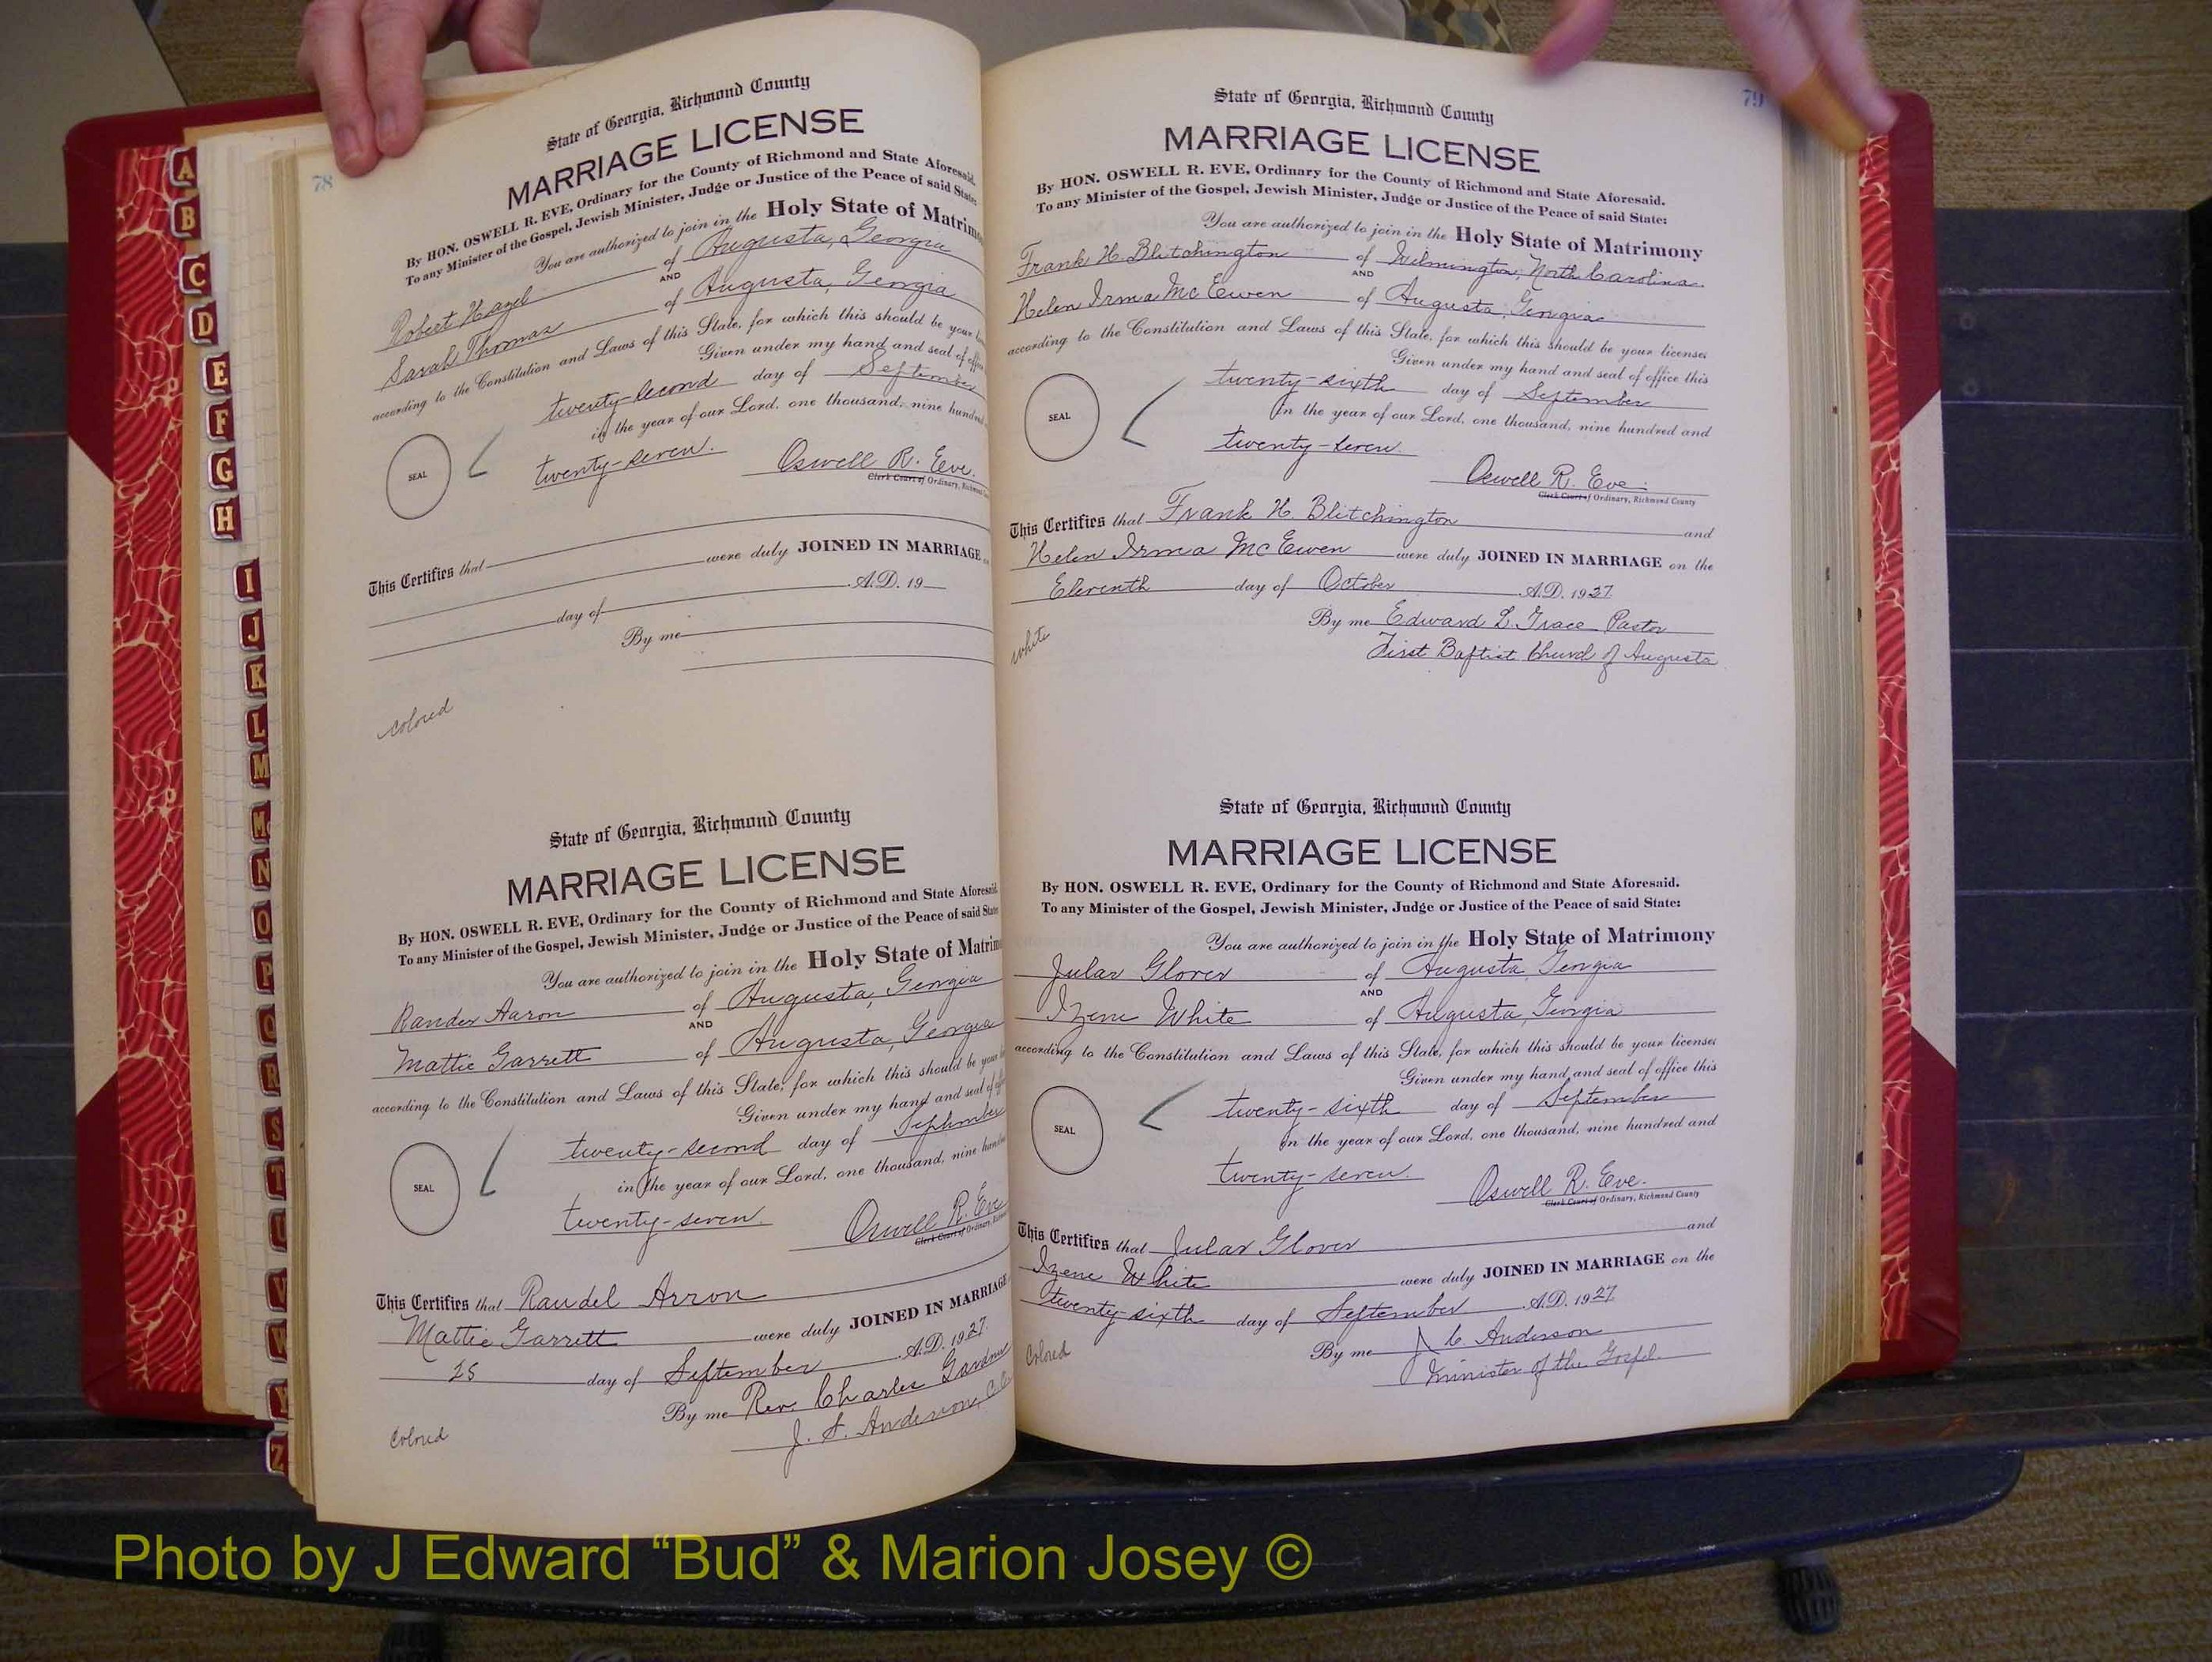 78
State of Georgia, Richmond County
MARRIAGE LICENSE
By HON. OSWELL R. EVE, Ordinary for the County of Richmond and State Aforesaid.
To any Minister of the Gospel, Jewish Minister, Judge or Justice of the Peace of said State:
You are authorized to join in the Holy State of Matrimo
Robert Hazel of Augusta, Georgia
AND
Sarah Thomas of Augusta, Georgia
according to the Constitution and Laws of this State, for which this should be your
Given under my hand and seal of office
twenty-second day of September
in the year of our Lord, one thousand, nine hundred
twenty-seven.
SEAL
Oswell R. Eve.
Clerk Court of Ordinary, Richmond
This Certifies that
were duly JOINED IN MARRIAGE
day of A.D. 19
By me
colored
State of Georgia, Richmond County
MARRIAGE LICENSE
By HON. OSWELL R. EVE, Ordinary for the County of Richmond and State Aforesaid.
To any Minister of the Gospel, Jewish Minister, Judge or Justice of the Peace of said State
You are authorized to join in the Holy State of Matrim
Rander Aaron of Augusta, Georgia
AND
Mattie Garrett of Augusta, Georgia
according to the Constitution and Laws of this State, for which this should be your
Given under my hand and seal of
twenty-second day of September
in the year of our Lord, one thousand, nine hundred
twenty-seven.
SEAL
Oswell R. Eve
Clerk Court of Ordinary,
This Certifies that Randel Arron
Mattie Garrett were duly JOINED IN MARRIAGE
25 day of September A.D. 1927.
By me Rev. Charles Gardner
J. S. Anderson
Colored
79
State of Georgia, Richmond County
MARRIAGE LICENSE
By HON. OSWELL R. EVE, Ordinary for the County of Richmond and State Aforesaid.
To any Minister of the Gospel, Jewish Minister, Judge or Justice of the Peace of said State:
You are authorized to join in the Holy State of Matrimony
Frank H. Blitchington of Wilmington, North Carolina.
AND
Helen Irma McEwen of Augusta, Georgia
according to the Constitution and Laws of this State, for which this should be your licenses
Given under my hand and seal of office this
twenty-sixth day of September
in the year of our Lord, one thousand, nine hundred and
twenty-seven.
SEAL
Oswell R. Eve.
Clerk Court of Ordinary, Richmond County
This Certifies that Frank H. Blitchington and
Helen Irma McEwen were duly JOINED IN MARRIAGE on the
Eleventh day of October A.D. 1927.
By me Edward L. Grace Pastor
First Baptist Church of Augusta
white
State of Georgia, Richmond County
MARRIAGE LICENSE
By HON. OSWELL R. EVE, Ordinary for the County of Richmond and State Aforesaid.
To any Minister of the Gospel, Jewish Minister, Judge or Justice of the Peace of said State:
You are authorized to join in the Holy State of Matrimony
Jular Glover of Augusta, Georgia
AND
Izene White of Augusta, Georgia
according to the Constitution and Laws of this State, for which this should be your licenses
Given under my hand and seal of office this
twenty-sixth day of September
in the year of our Lord, one thousand, nine hundred and
twenty-seven.
SEAL
Oswell R. Eve.
Clerk Court of Ordinary, Richmond County
This Certifies that Jular Glover and
Izene White were duly JOINED IN MARRIAGE on the
twenty-sixth day of September A.D. 1927.
By me J. C. Anderson
Minister of the Gospel.
Colored
A
B
C
D
E
F
G
H
I
J
K
L
M
Mc
N
O
P
Q
R
S
T
U
V
W
Y
Z
Photo by J Edward “Bud” & Marion Josey ©